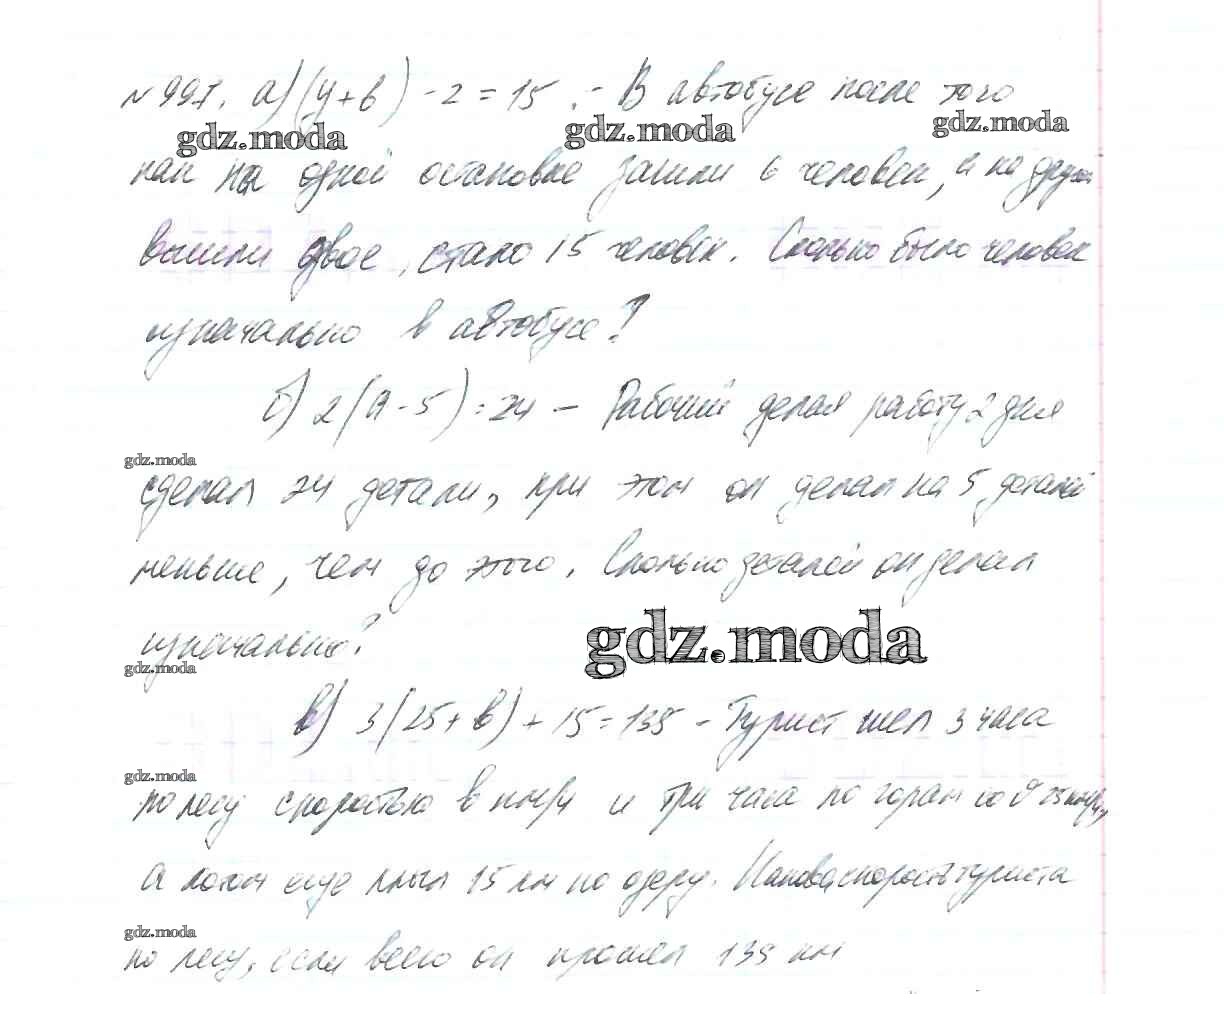 № 997. а) (у+6) - 2 = 15 :- В автобусе после того
gdz.moda gdz.moda gdz.moda
как на одной остановке зашли 6 человек, а на другой
вышли двое, стало 15 человек. Сколько было человек
изначально в автобусе?
б) 2(а - 5) = 24 - Рабочий делая работу 2 дня
gdz.moda
сделал 24 детали, при этом он делал на 5 деталей
меньше, чем до этого. Сколько деталей он делал
gdz.moda
изначально?
gdz.moda
в) 3(25 + в) + 15 = 135 - Турист шел 3 часа
gdz.moda
по лесу скоростью в км/ч и три часа по горам со v 25 км/ч,
а потом еще плыл 15 км по озеру. Какова скорость туриста
gdz.moda
по лесу, если всего он прошел 135 км